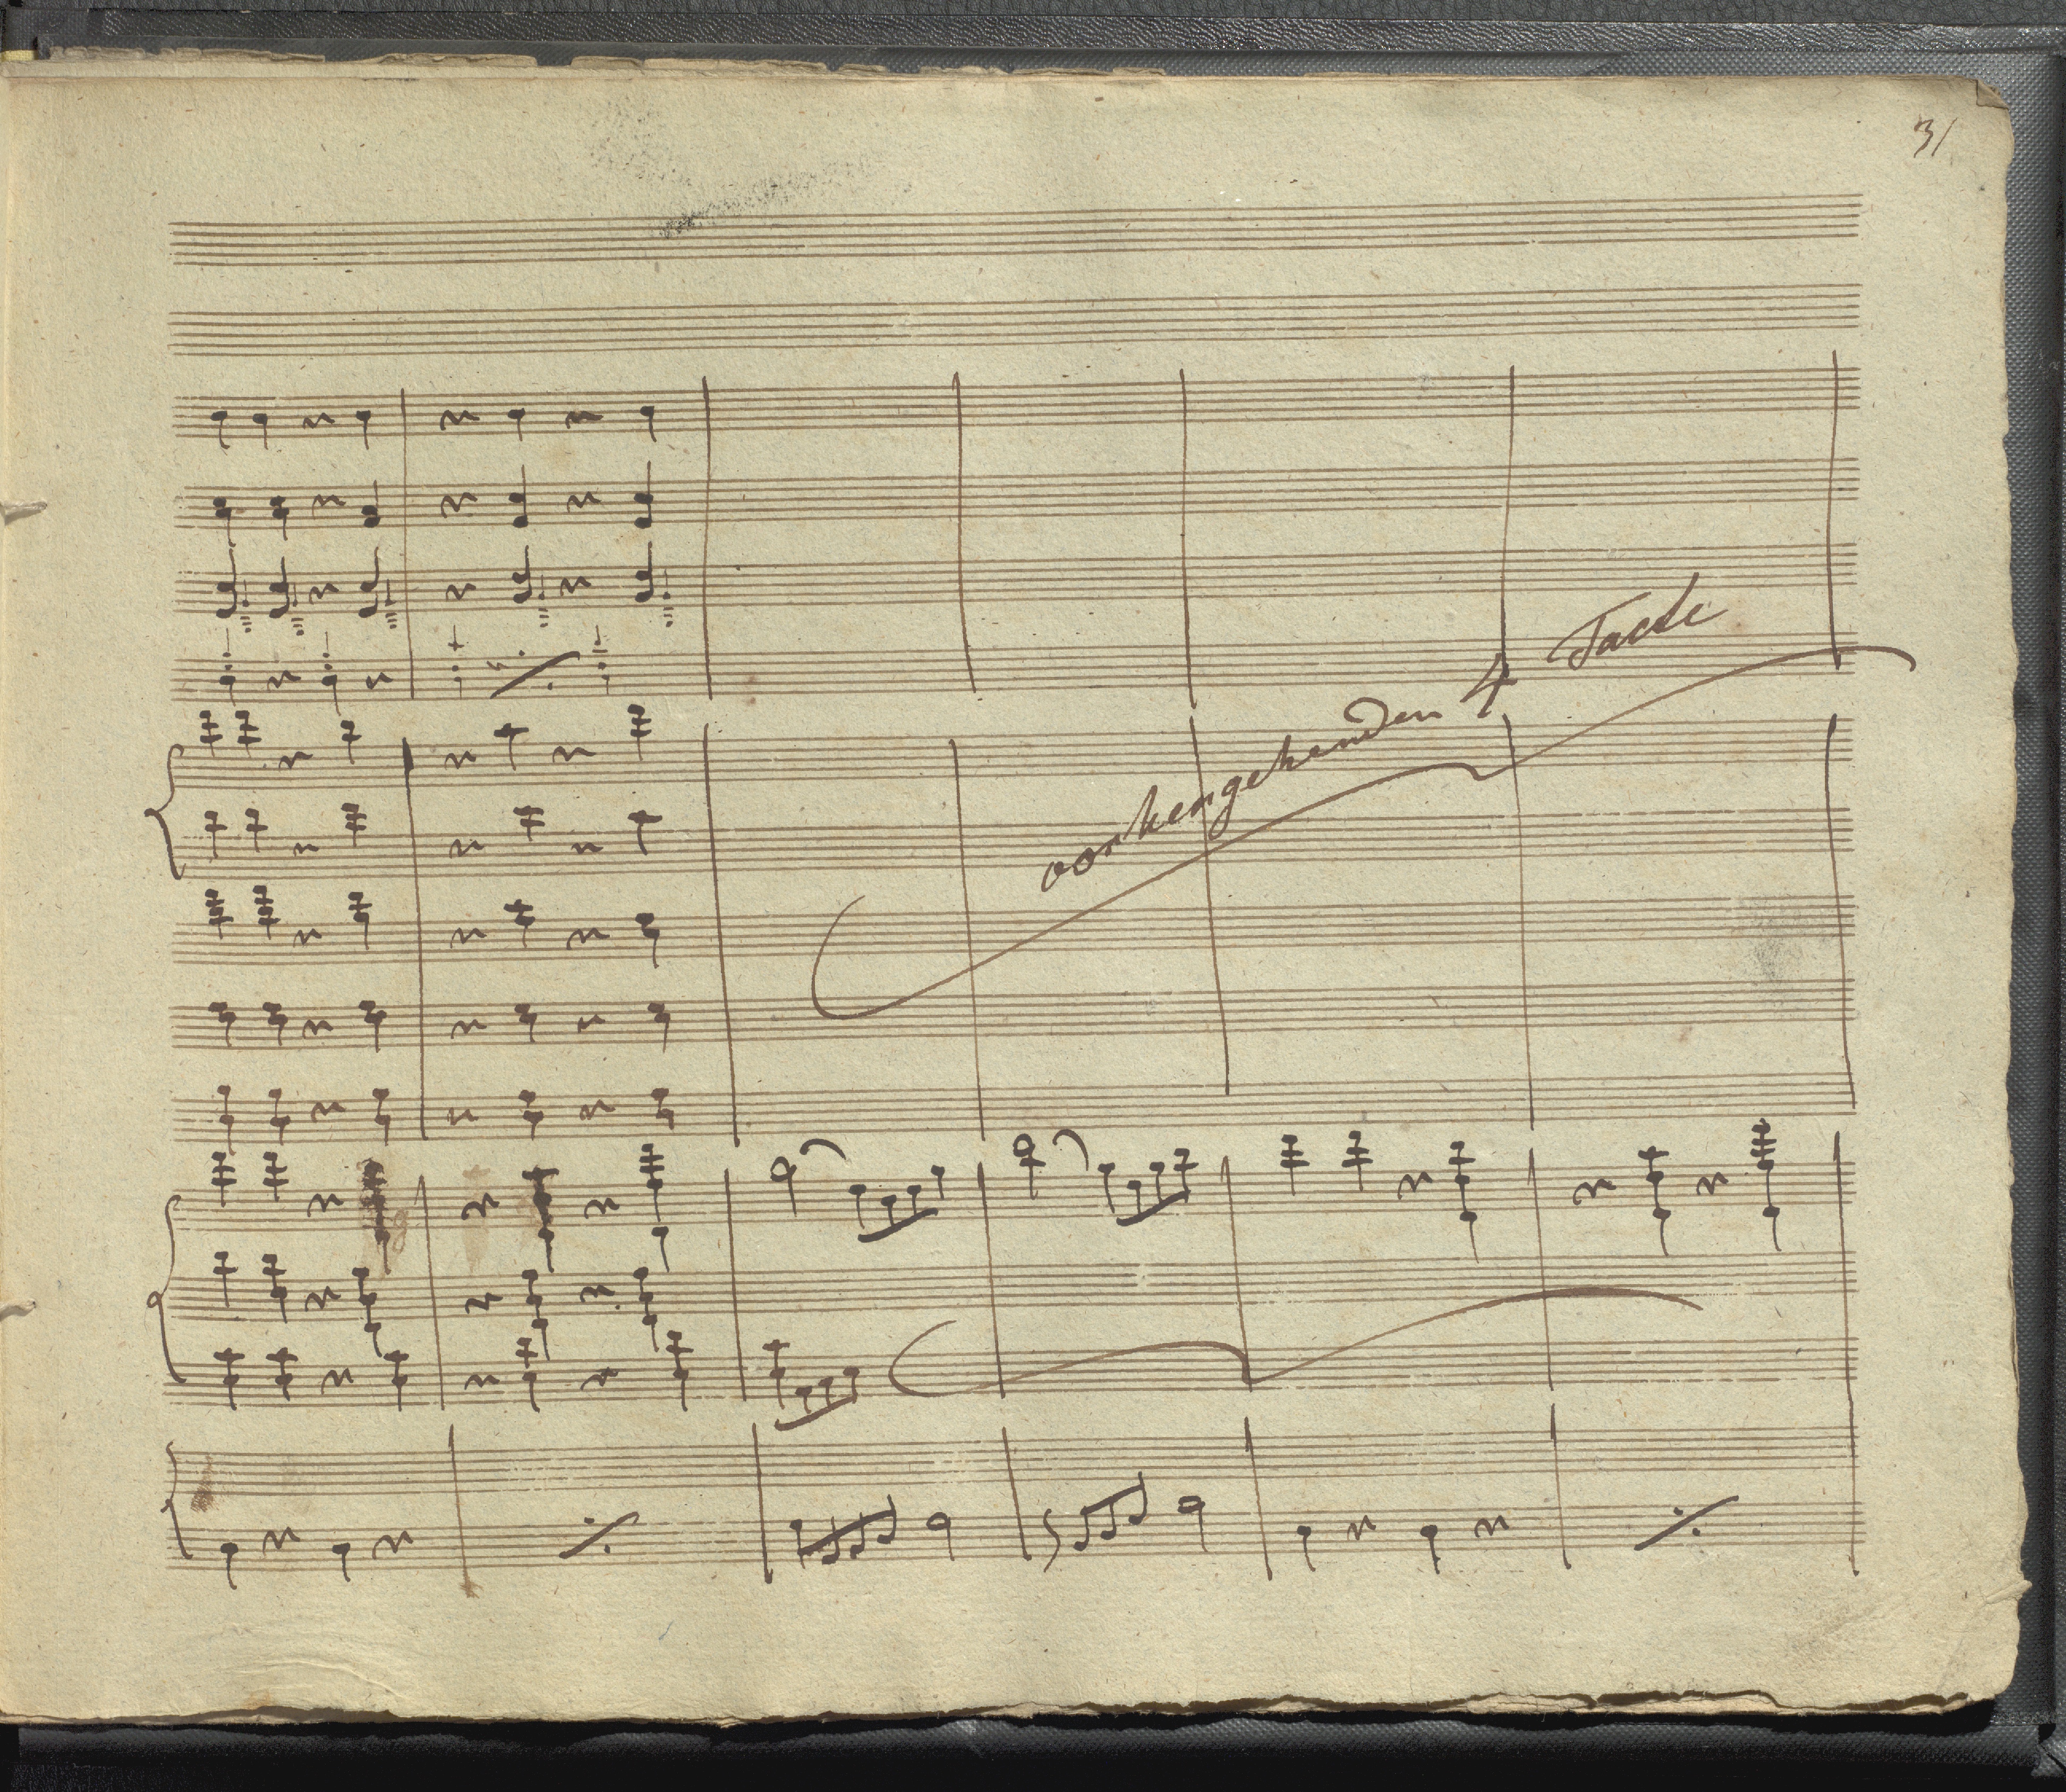 31
vorhergehenden 4 Tacte